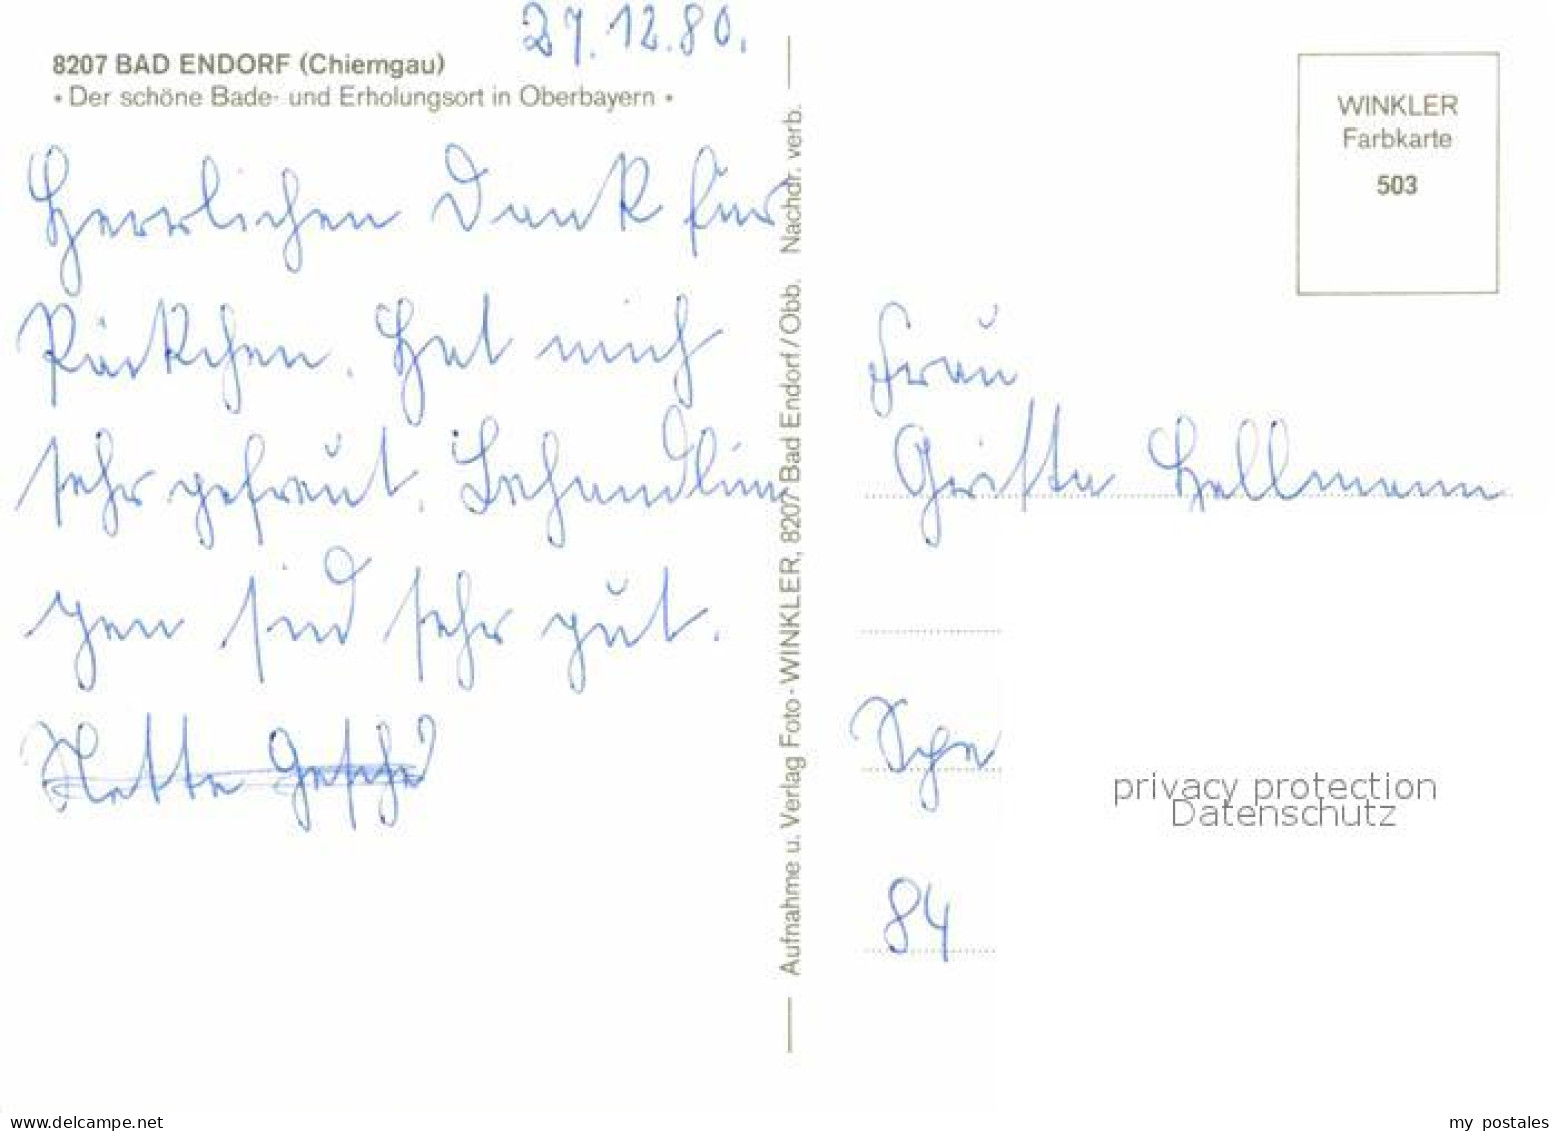 27.12.80.
8207 BAD ENDORF (Chiemgau)
• Der schöne Bade- und Erholungsort in Oberbayern •
Herrlichen Dank für
Päckchen. Hat mich
sehr gefreut. Behandlun
gen sind sehr gut.
Nette
Aufnahme u. Verlag Foto-WINKLER, 8207 Bad Endorf/Obb. Nachdr. verb.
WINKLER
Farbkarte
503
Frau
Hellmann
84
privacy protection
Datenschutz
www.delcampe.net
my_postales